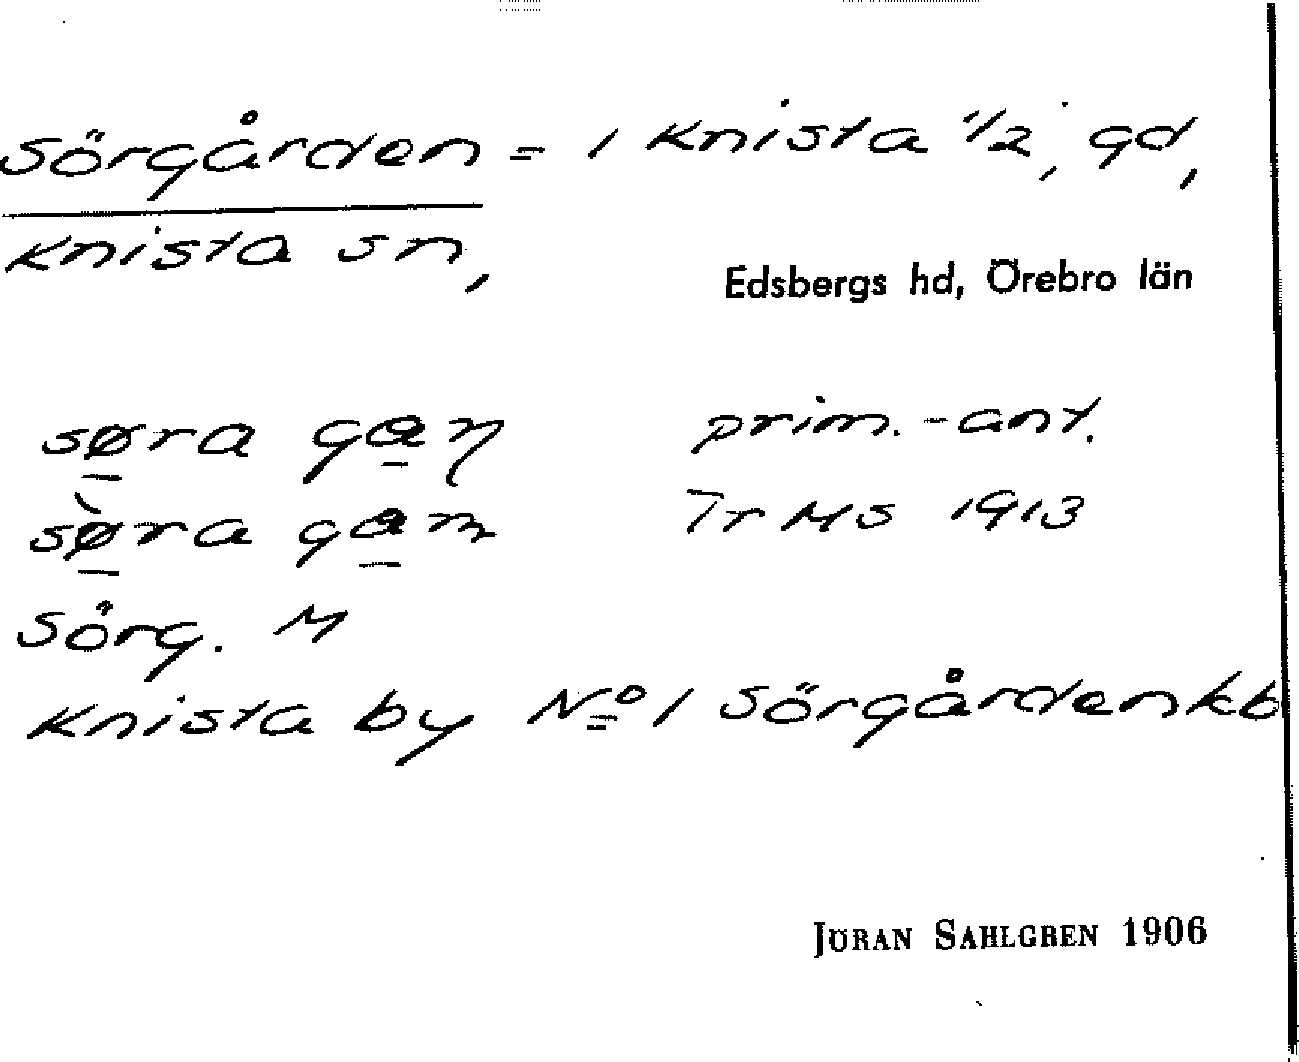 Sörgården = 1 Knista 1/2, gd,
Knista sn,
Edsbergs hd, Örebro län
søra gan prim.-ant.
sø̀ra gan Tr MS 1913
Sörg. M
Knista by No 1 Sörgården kb
JÖRAN SAHLGREN 1906